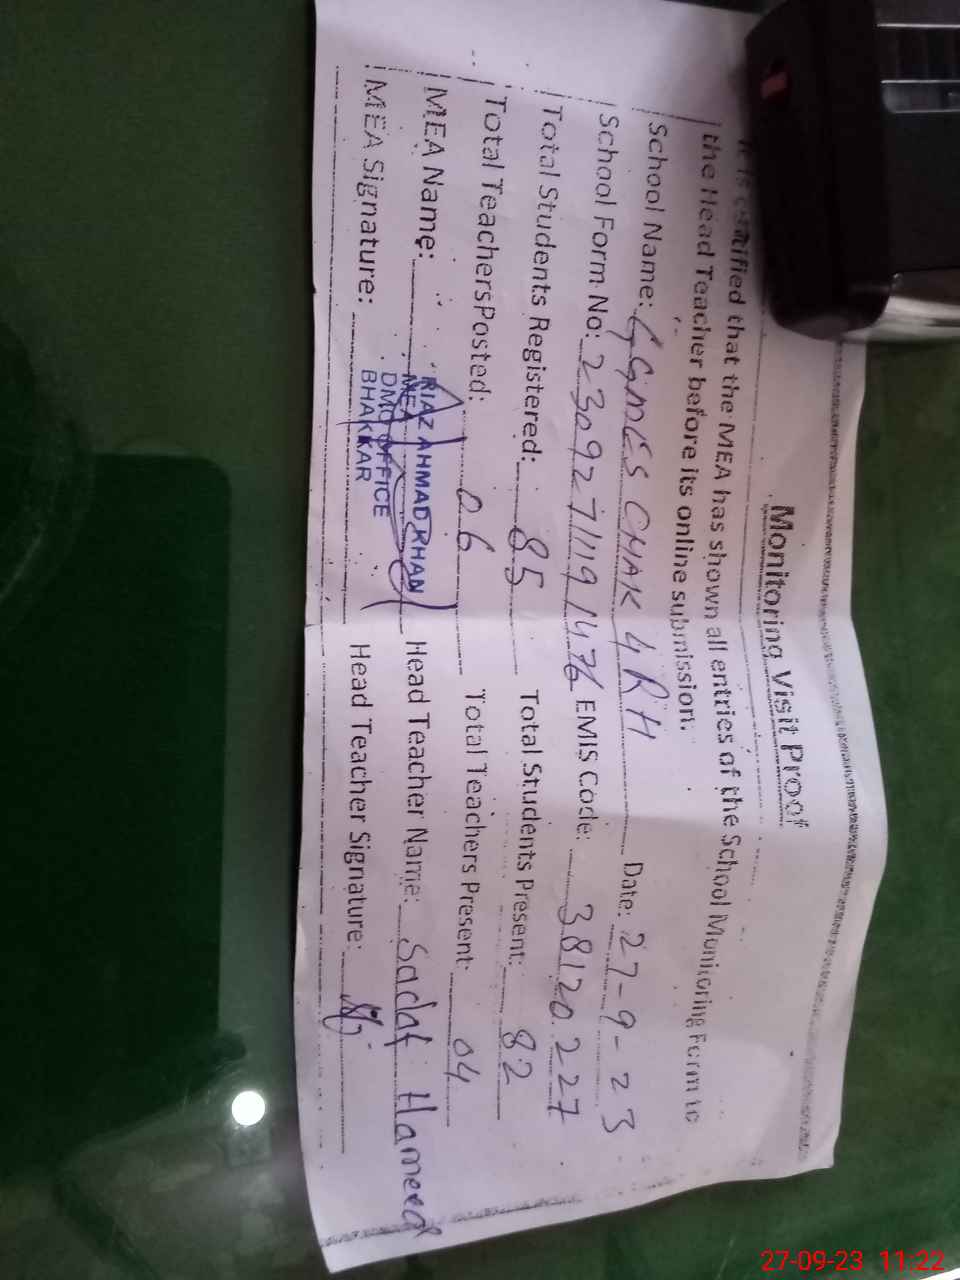 Monitoring Visit Proof
It is certified that the MEA has shown all entries of the School Monitoring Form to
the Head Teacher before its online submission.
School Name: GGMES CHAK 4 RH Date: 27-9-23
School Form No: 23092711191476 EMIS Code: 38120227
Total Students Registered: 85 Total Students Present: 82
Total Teachers Posted: 06 Total Teachers Present: 04
MEA Name: RIAZ AHMAD KHAN Head Teacher Name: Sadaf Hameed
MEA Signature: MEA DMO OFFICE BHAKKAR Head Teacher Signature:
27-09-23 11:22